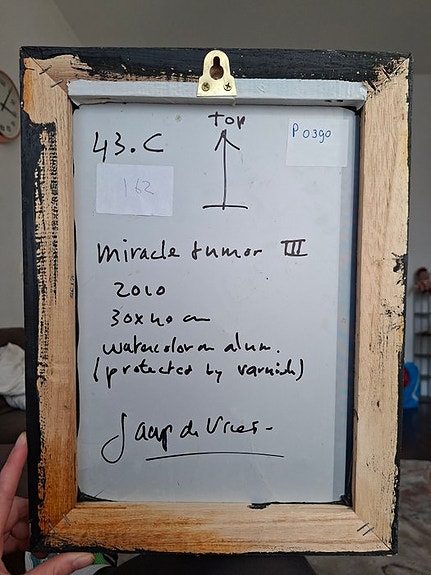 Top
43.C
P0390
162
miracle tumor III
2010
30x40 cm
watercolor on alum.
(protected by varnish)
Jaap de Vries-